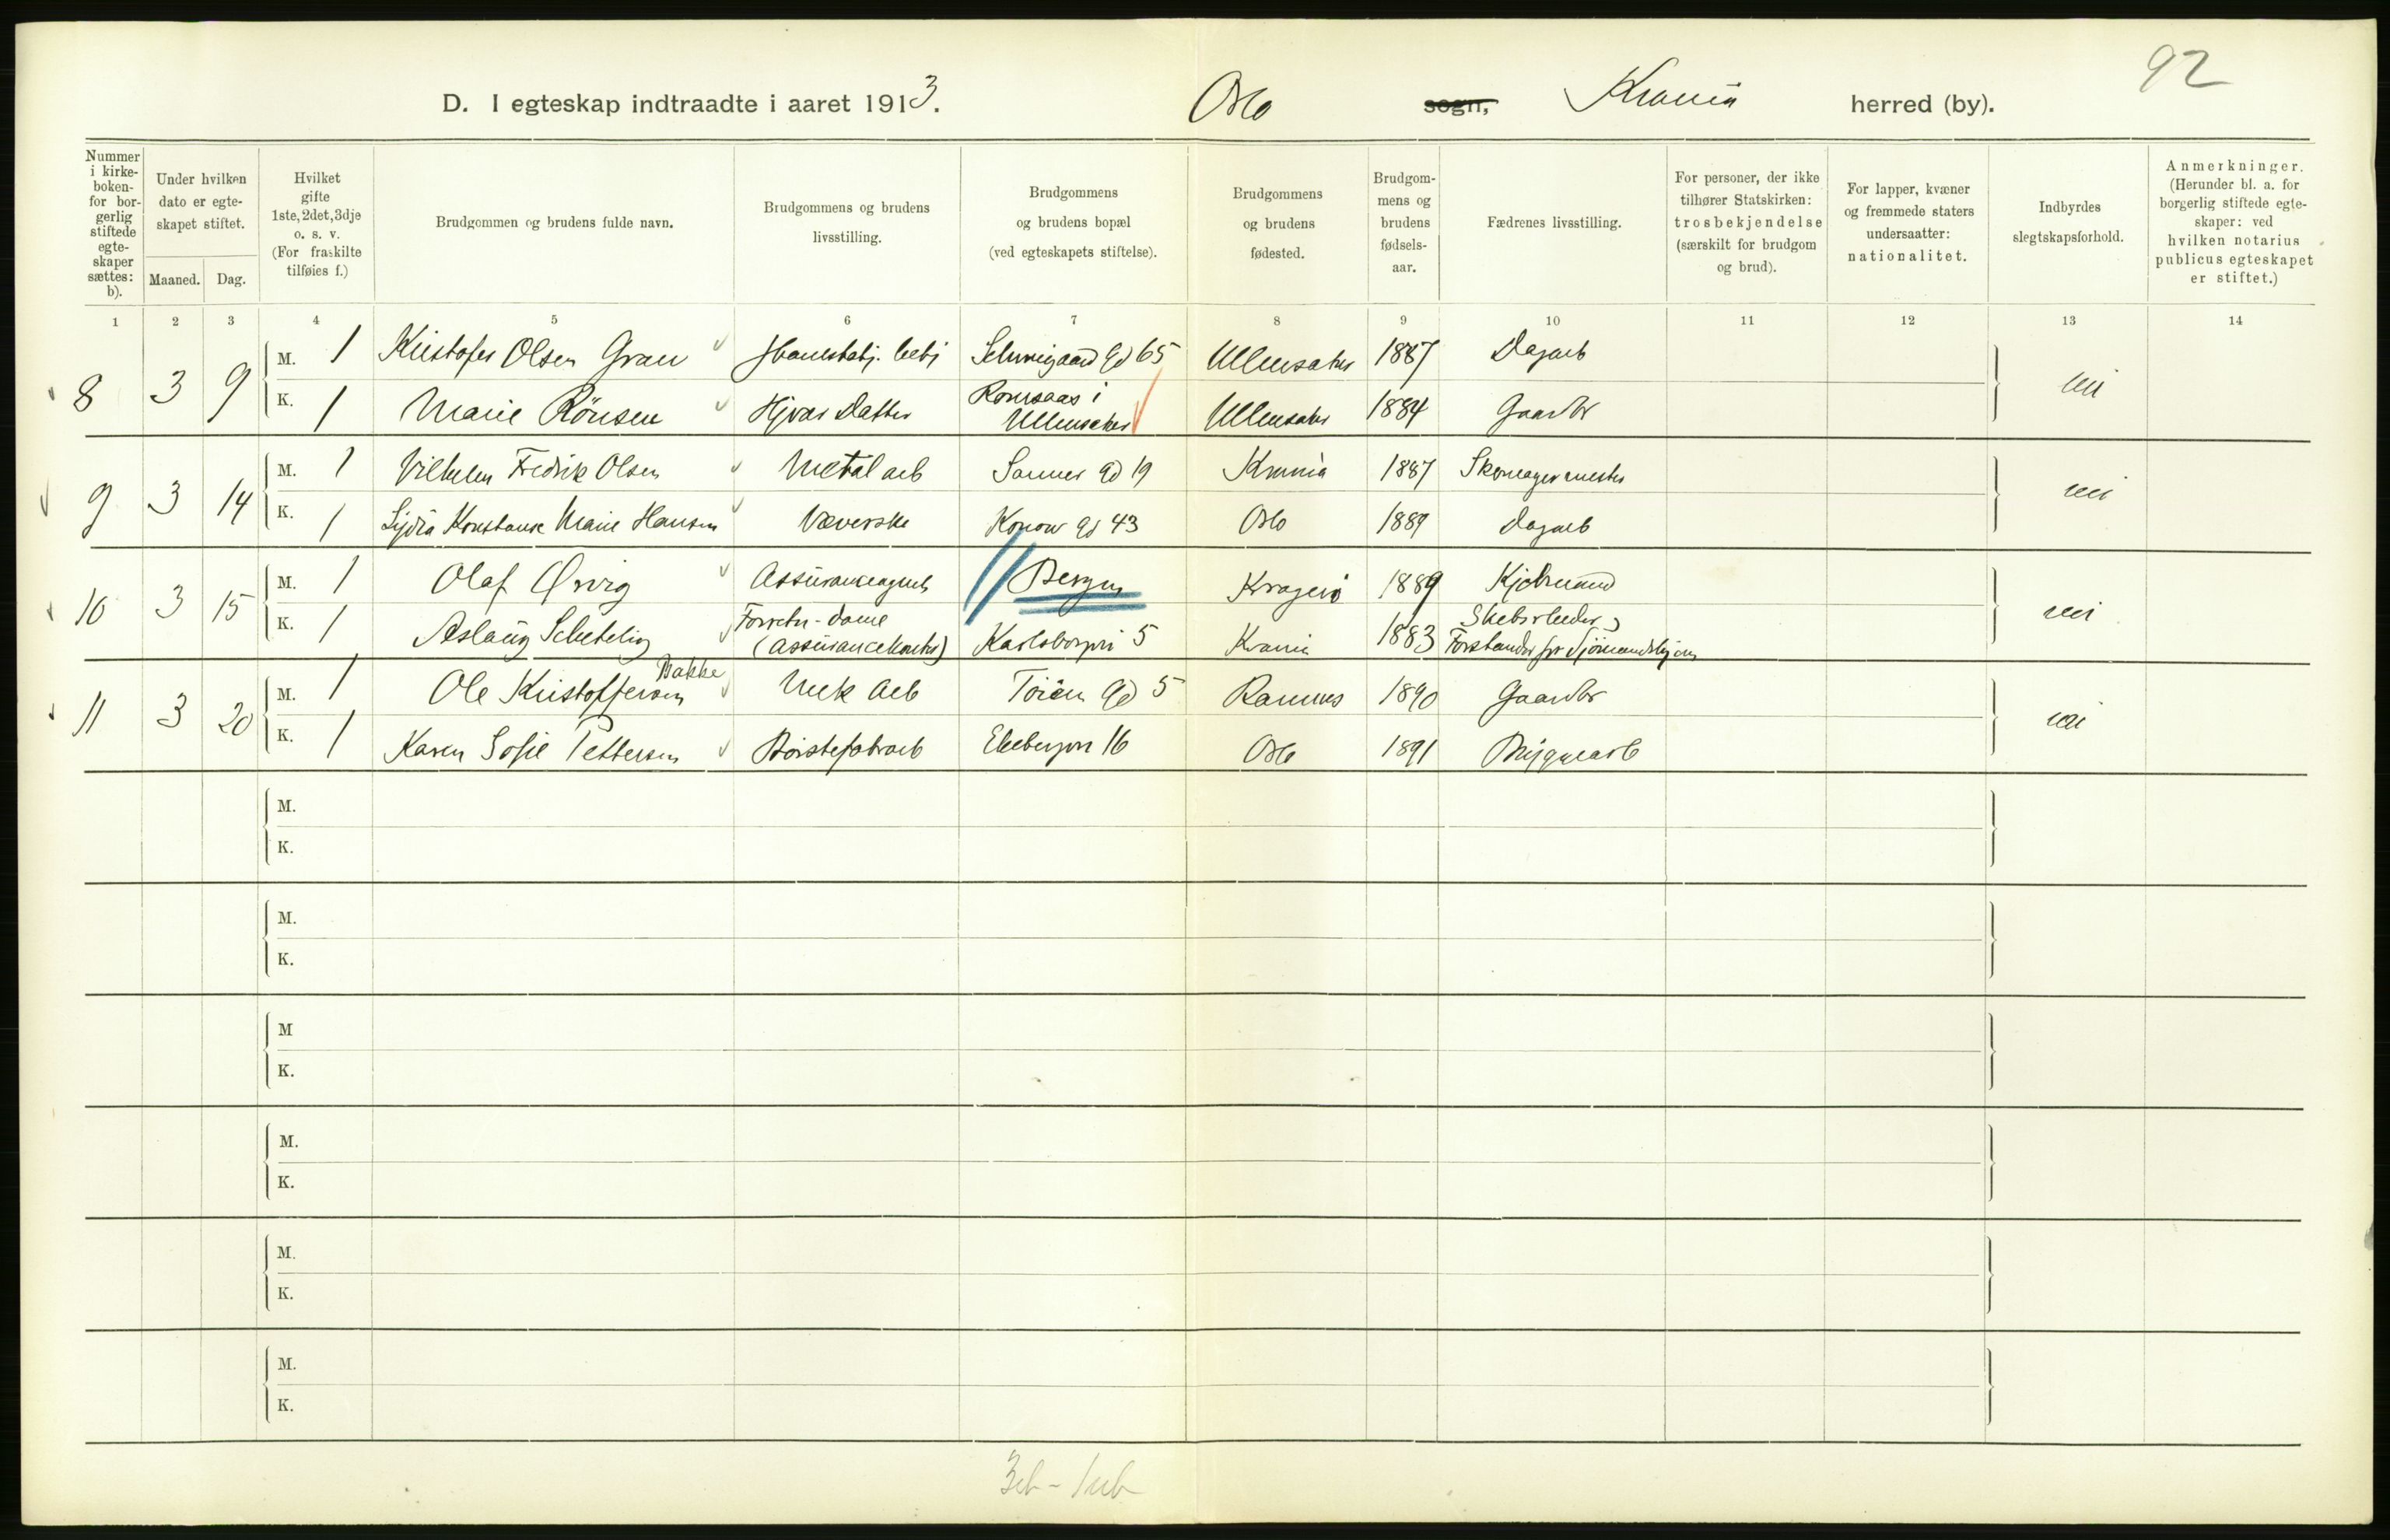 92
D. I egteskap indtraadte i aaret 1913. Oslo sogn, Krania herred (by).
Nummer i kirke-boken- for bor-gerlig stiftede egte-skaper sættes: b).
Under hvilken dato er egte-skapet stiftet.
Maaned. Dag.
Hvilket gifte 1ste, 2det, 3dje o. s. v. (For fraskilte tilføies f.)
Brudgommen og brudens fulde navn.
Brudgommens og brudens livsstilling.
Brudgommens og brudens bopæl (ved egteskapets stiftelse).
Brudgommens og brudens fødested.
Brudgom-mens og brudens fødsels-aar.
Fædrenes livsstilling.
For personer, der ikke tilhører Statskirken: trosbekjendelse (særskilt for brudgom og brud).
For lapper, kvæner og fremmede staters undersaatter: nationalitet.
Indbyrdes slegtskapsforhold.
Anmerkninger. (Herunder bl. a. for borgerlig stiftede egte-skaper: ved hvilken notarius publicus egteskapet er stiftet.)
1 2 3 4 5 6 7 8 9 10 11 12 13 14
8 3 9 M. 1 Kristofer Olsen Gran Schweigaard gd 65 Ullensaker 1887 Dagarb nei
K. 1 Marie Rönsen Hjvær Datter Romsaas i Ullensaker Ullensaker 1884 Gaardbr
9 3 14 M. 1 Vilhelm Fredrik Olsen Metal arb Sanner gd 19 Krania 1887 Skomagermester nei
K. 1 Lydia Konstanse Marie Hansen Væverske Konow gd 43 Oslo 1889 Dagarb
10 3 15 M. 1 Olaf Ørvig Assuranceagent Bergen Kragerö 1889 Kjøbmand nei
K. 1 Aslaug Schetelig Forretn-dame (assurancekontor) Karlsborgvei 5 Krania 1883 Skibsreder, Forstander for Sjömandshjem
11 3 20 M. 1 Ole Kristoffersen Bakke Mek Arb Töien gd 5 Ramnes 1890 Gaardbr nei
K. 1 Karen Sofie Pettersen Börstefabrarb Ekebergvn 16 Oslo 1891 Bryggearb
M.
K.
M.
K.
M
K.
M.
K.
M.
K.
M.
K.